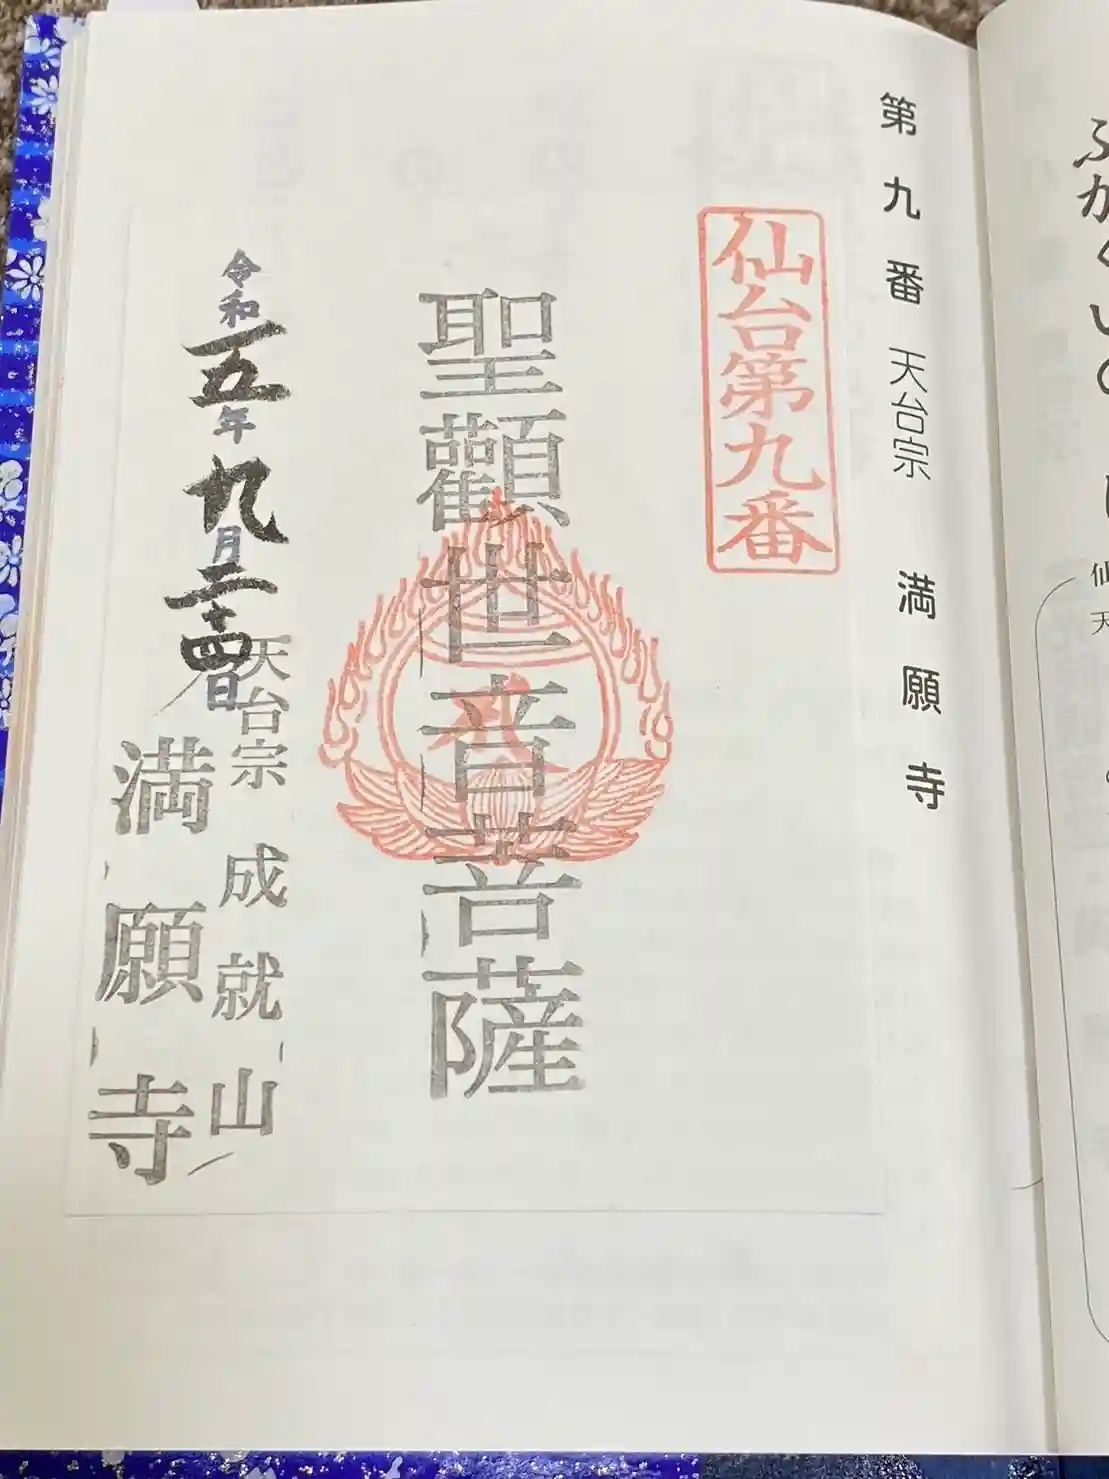 第九番 天台宗 満願寺
仙台第九番
聖観世音菩薩
令和五年九月二十四日
天台宗 成就山
満願寺